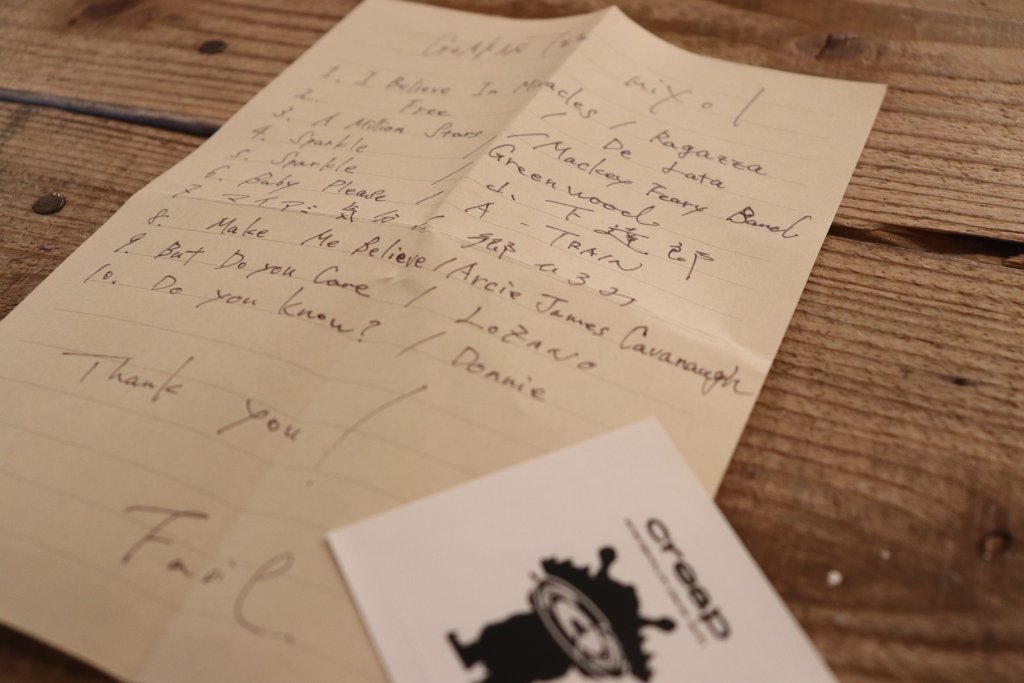 mix
1. I Believe In Miracles / Ragazza
2. Free / De Lata
3. A Million Stars / Mackey Feary Band
4. Sparkle / Greenwood
5. Sparkle / 山下達郎
6. Baby Please / A-TRAIN
7 マイアミ気分 /
8. Make Me Believe / Arcie James Cavanaugh
9. But Do you Care / LOZANO
10. Do you Know? / Donnie
Thank you !
creap